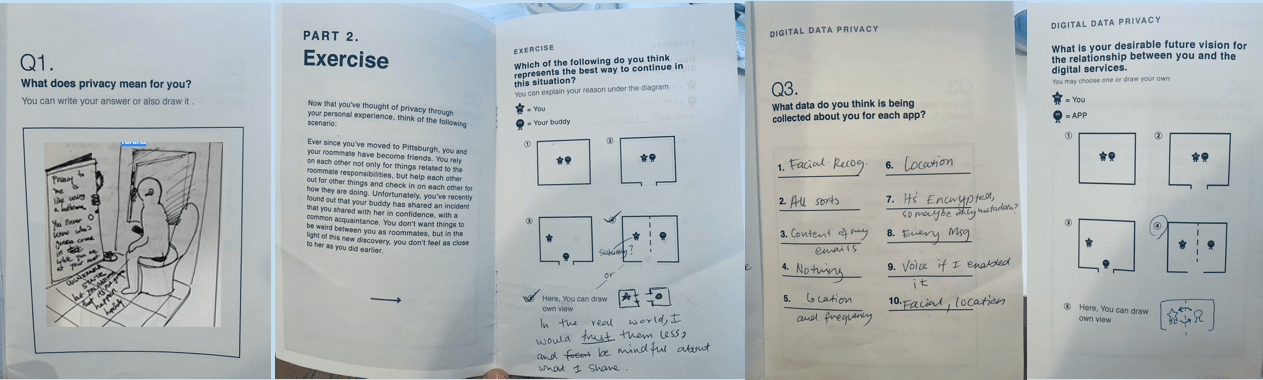 Q1.
What does privacy mean for you?
You can write your answer or also draw it .
Privacy to
me
like using
a bathroom
You never
know who's
gonna come
in
while you
at your most
PART 2.
Exercise
Now that you've thought of privacy through
your personal experience, think of the following
scenario:
Ever since you've moved to Pittsburgh, you and
your roommate have become friends. You rely
on each other not only for things related to the
roommate responsibilities, but help each other
out for other things and check in on each other for
how they are doing. Unfortunately, you've recently
found out that your buddy has shared an incident
that you shared with her in confidence, with a
common acquaintance. You don't want things to
be weird between you as roommates, but in the
light of this new discovery, you don't feel as close
to her as you did earlier.
EXERCISE
Which of the following do you think
represents the best way to continue in
this situation?
You can explain your reason under the diagram
= You
= Your buddy
1
2
3
?
or
Here, You can draw
own view
In the real world, I
would trust them less,
and be mindful about
what I share.
DIGITAL DATA PRIVACY
Q3.
What data do you think is being
collected about you for each app?
1. Facial Recog.
2. All sorts
3. Content of my
emails
4. Nothing
5. Location
and frequency
6. Location
7. It's Encrypted,
so maybe only metadata?
8. Every Msg
9. Voice if I enabled
it
10. Facial, location
DIGITAL DATA PRIVACY
What is your desirable future vision for
the relationship between you and the
digital services.
You may choose one or draw your own
= You
= APP
1
2
3
4
5 Here, You can draw
own view